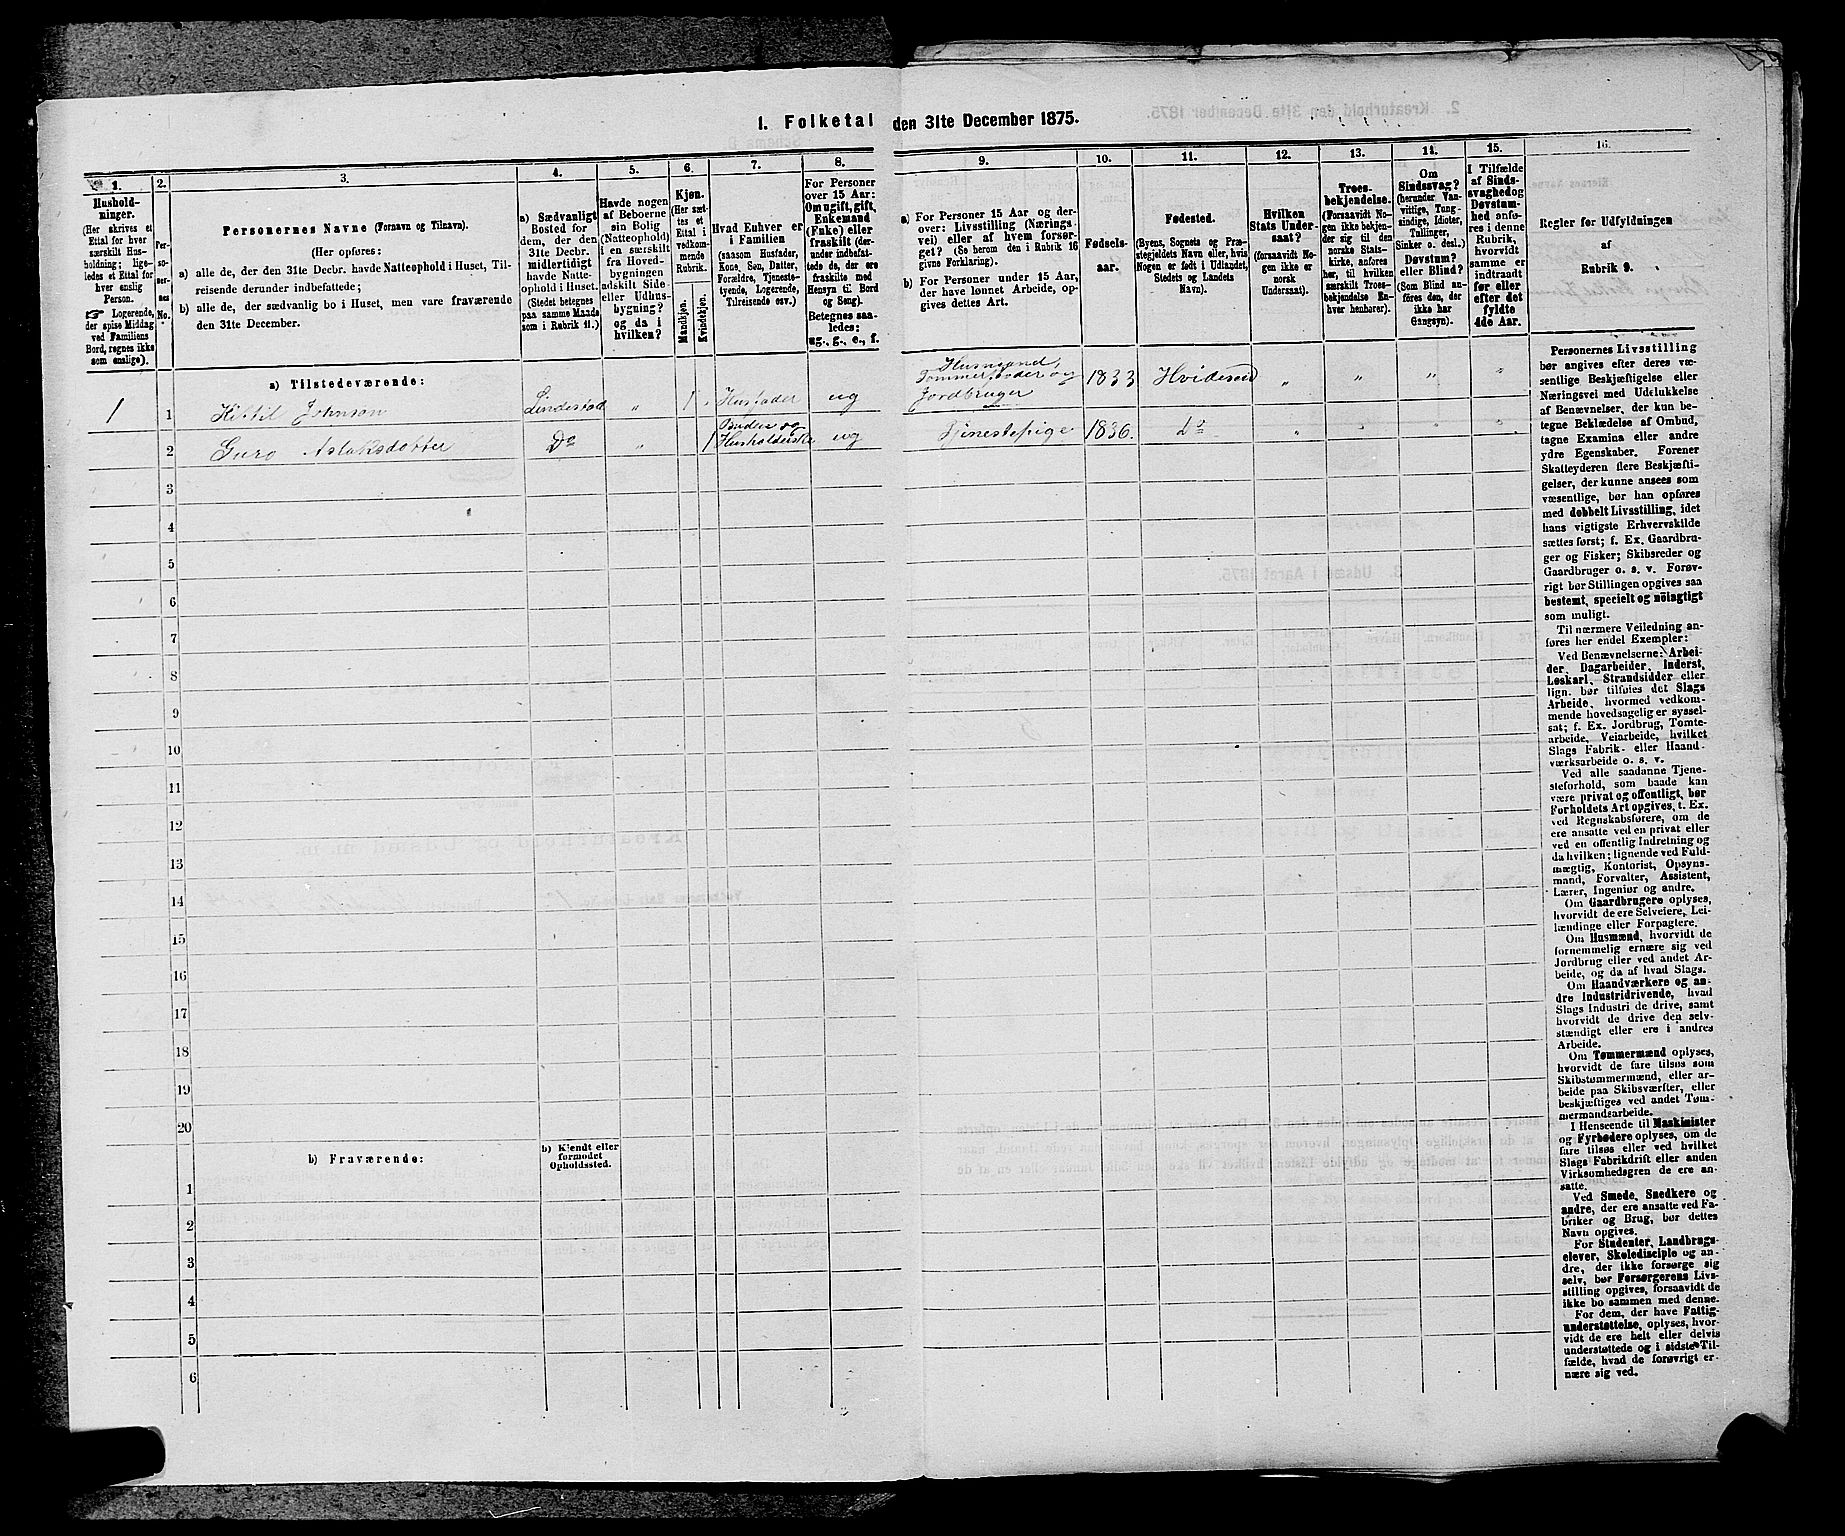 1. Folketal den 31te December 1875.
1.
2.
3.
4.
5.
6.
7.
8.
9.
10.
11.
12.
13.
14.
15.
16.
Hushold-
ninger.
(Her skrives et
Ettal for hver
særskilt Hus-
holdning; lige-
ledes et Ettal for
hver enslig
Person.
☞ Logerende,
der spise Middag
ved Familiens
Bord, regnes ikke
som enslige).
Per-
so-
ner-
nes
No.
Personernes Navne (Fornavn og Tilnavn).
(Her opføres:
a) alle de, der den 31te Decbr. havde Natteophold i Huset, Til-
reisende derunder indbefattede;
b) alle de, der sædvanlig bo i Huset, men vare fraværende
den 31te December.
a) Sædvanligt
Bosted for
dem, der den
31te Decbr.
midlertidigt
havde Natte-
ophold i Huset.
(Stedet betegnes
paa samme Maade
som i Rubrik 11.)
Havde nogen
af Beboerne
sin Bolig
(Natteophold)
i en særskilt
fra Hoved-
bygningen
adskilt Side-
eller Udhus-
bygning?
og da i
hvilken?
Kjøn.
(Her sæt-
tes et
Ettal i
vedkom-
mende
Rubrik.
Mandkjøn.
Kvindekjøn.
Hvad Enhver er
i Familien
(saasom Husfader,
Kone, Søn, Datter,
Forældre, Tjeneste-
tyende, Logerende,
Tilreisende osv.)
For Personer
over 15 Aar:
Om ugift, gift,
Enkemand
(Enke) eller
fraskilt (der-
under indbefat-
tede de, der ere
fraskilte med
Hensyn til Bord
og Seng).
Betegnes saa-
ledes:
ug., g., e., f.
a) For Personer 15 Aar og der-
over: Livsstilling (Nærings-
vei) eller af hvem forsør-
get? (Se herom den i Rubrik 16
givne Forklaring).
b) For Personer under 15 Aar,
der have lønnet Arbeide, op-
gives dettes Art.
Fødsels-
aar.
Fødested.
(Byens, Sognets og Præ-
stegjeldets Navn eller, hvis
Nogen er født i Udlandet,
Stedets og Landets
Navn).
Hvilken
Stats Under-
saat?
(forsaavidt No-
gen ikke er
norsk
Undersaat).
Troes-
bekjendelse.
(Forsaavidt No-
gen ikke bekjen-
der sig til den
norske Stats-
kirke, anføres
her, til hvilken
særskilt Troes-
bekjendelse En-
hver henhører).
Om
Sindssvag?
(herunder Van-
vittige, Tung-
sindige, Idioter,
Tullinger,
Sinker o. desl.)
Døvstum?
eller Blind?
(Som Blind an-
føres den, der
ikke har
Gangsyn).
I Tilfælde
af Sinds-
svaghed og
Døvstum-
hed anfø-
res i denne
Rubrik,
hvorvidt
samme er
indtraadt
før eller
efter det
fyldte
4de Aar.
Regler for Udfyldningen
af
Rubrik 9.
a) Tilstedeværende:
1 1 Kittil Johnson Lindestad " 1 Husfader ug Husmand, Tømmer og Jordbruger 1833 Hvideseid " " " "
2 Guro Aslaksdotter Do " 1 Budeie og Husholderske ug Tjenestepige 1836. Do " " " "
3
4
5
6
7
8
9
10
11
12
13
14
15
16
17
18
19
20
b) Fraværende:
b) Kjendt eller
formodet
Opholdssted.
1
2
3
4
5
6
Personernes Livsstilling
bør angives efter deres væ-
sentlige Beskjæftigelse eller
Næringsvei med Udelukkelse
af Benævnelser, der kun be-
tegne Beklædelse af Ombud,
tagne Examina eller andre
ydre Egenskaber. Forener
Skatteyderen flere Beskjæfti-
gelser, der kunne ansees som
væsentlige, bør han opføres
med dobbelt Livsstilling, idet
hans vigtigste Erhvervskilde
sættes først; f. Ex. Gaardbru-
ger og Fisker; Skibsreder og
Gaardbruger o. s. v. Forøv-
rigt bør Stillingen opgives saa
bestemt, specielt og nöiagtigt
som muligt.
Til nærmere Veiledning an-
føres her endel Exempler:
Ved Benævnelserne: Arbei-
der, Dagarbeider, Inderst,
Løskarl, Strandsidder eller
lign. bør tilføies det Slags
Arbeide, hvormed vedkom-
mende hovedsagelig er syssel-
sat; f. Ex. Jordbrug, Tomte-
arbeide, Veiarbeide, hvilket
Slags Fabrik- eller Haand-
værksarbeide o. s. v.
Ved alle saadanne Tjene-
steforhold, som baade kan
være privat og offentligt, bør
Forholdets Art opgives, t. Ex.
ved Regnskabsførere, om de
ere ansatte ved en privat eller
ved en offentlig Indretning og
da hvilken; lignende ved Fuld-
mægtig, Kontorist, Opsyns-
mand, Forvalter, Assistent,
Lærer, Ingeniør og andre.
Om Gaardbrugere oplyses,
hvorvidt de ere Selveiere, Lei-
lændinge eller Forpagtere.
Om Husmænd, hvorvidt de
fornemmelig ernære sig ved
Jordbrug eller ved andet Ar-
beide, og da af hvad Slags.
Om Haandværkere og an-
dre Industridrivende, hvad
Slags Industri de drive, samt
hvorvidt de drive den selv-
stændigt eller ere i andres
Arbeide.
Om Tømmermænd oplyses,
hvorvidt de fare tilsøs som
Skibstømmermænd, eller ar-
beide paa Skibsværfter, eller
beskjæftiges ved andet Tøm-
mermandsarbeide.
I Henseende til Maskinister
og Fyrbødere oplyses, om de
fare tilsøs eller ved hvilket
Slags Fabrikdrift eller anden
Virksomhedsgren de ere an-
satte.
Ved Smede, Snedkere og
andre, der ere ansatte ved Fa-
briker og Brug, bør dettes
Navn opgives.
For Studenter, Landbrugs-
elever, Skoledisciple og an-
dre, der ikke forsørge sig
selv, bør Forsørgerens Livs-
stilling opgives, forsaavidt de
ikke bo sammen med denne.
For dem, der have Fattig-
understøttelse, oplyses, hvor-
vidt de ere helt eller delvis
understøttede og i sidste Til-
fælde, hvad de forøvrigt er-
nære sig ved.